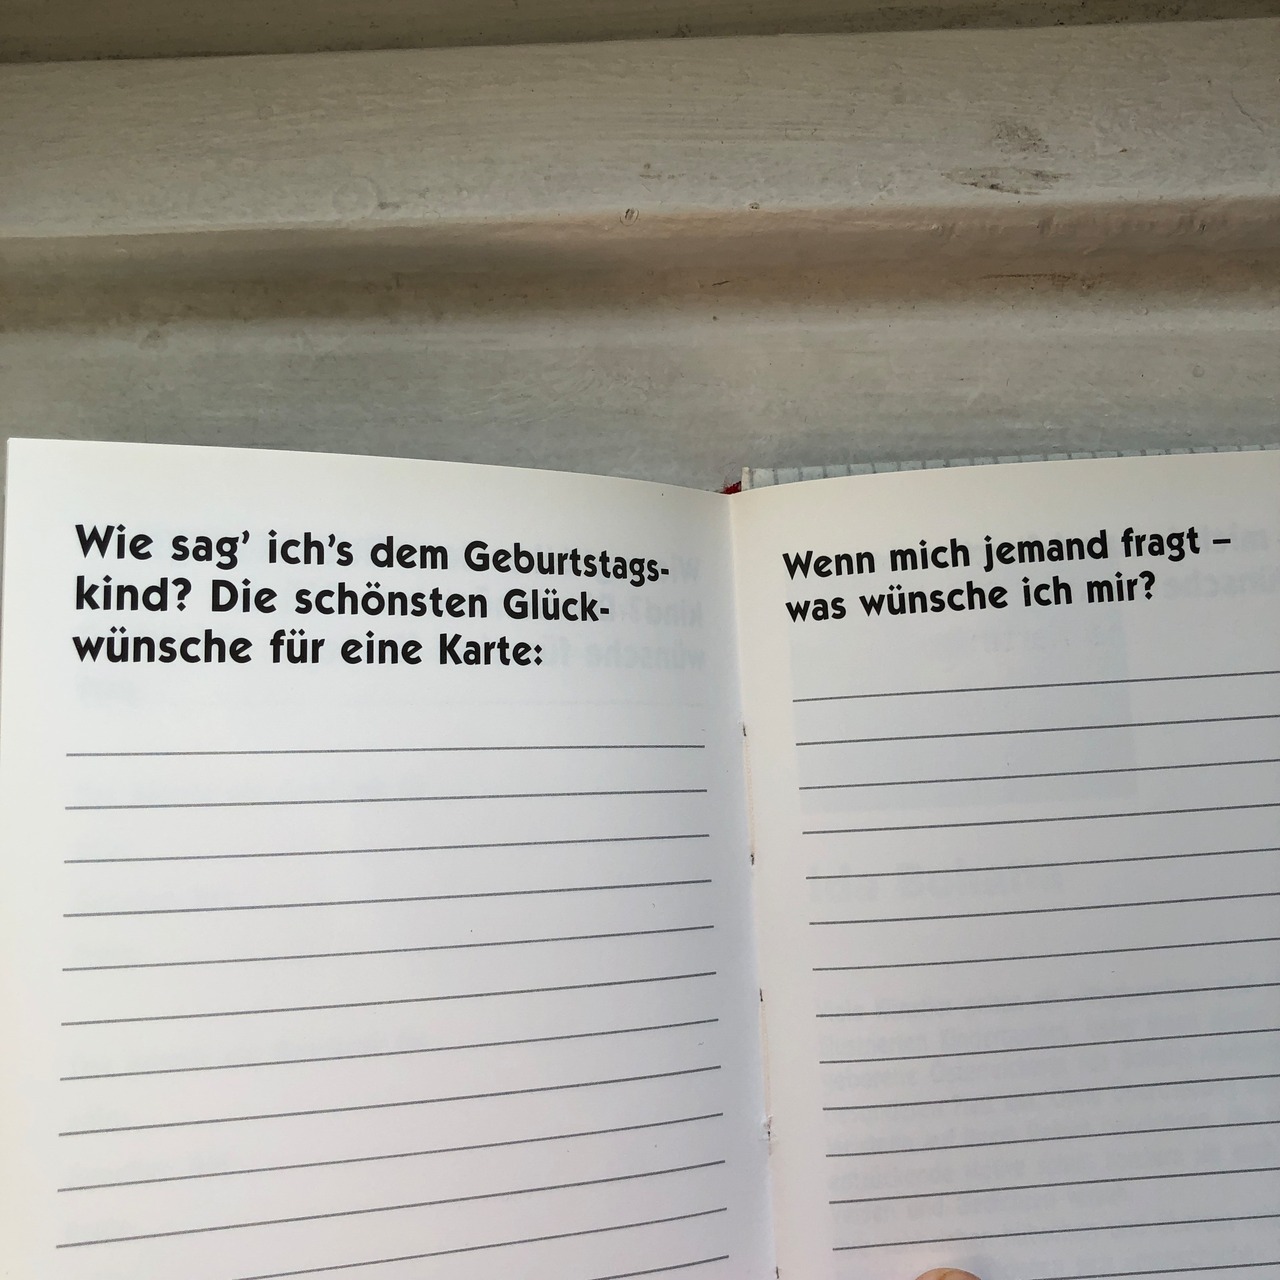 Wie sag' ich's dem Geburtstags-
kind? Die schönsten Glück-
wünsche für eine Karte:
Wenn mich jemand fragt –
was wünsche ich mir?